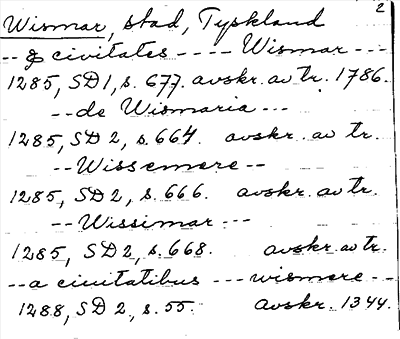 2
Wismar, stad, Tyskland
-- & civitates ---- Wismar ---
1285, SD1, s. 677. avskr. av tr. 1786.
-- de Wismaria ---
1285, SD 2, s. 664. avskr. av tr.
-- Wissemere --
1285, SD 2, s. 666. avskr. av tr.
-- Wissimar ---
1285, SD 2, s. 668. avskr. av tr.
-- a ciuitatibus --- wismere --
1288, SD 2, s. 55. avskr. 1344.